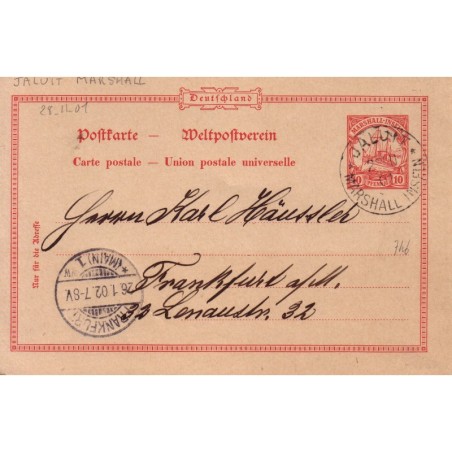 JALUIT MARSHALL
28.11.01
Deutschland
Postkarte — Weltpostverein
Carte postale — Union postale universelle
MARSHALL-INSELN
10
JALUIT
MARSHALL INSELN
Nur für die Adresse
Herrn Karl Häussler
Frankfurt a/M.
32 Lenaustr. 32
FRANKFURT
*(MAIN) 1
26.1.02.7-8V.